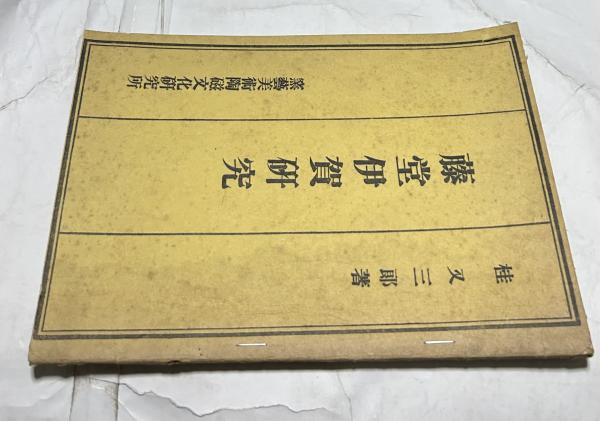 桂又三郎著
藤堂伊賀研究
窯藝美術陶磁文化研究所